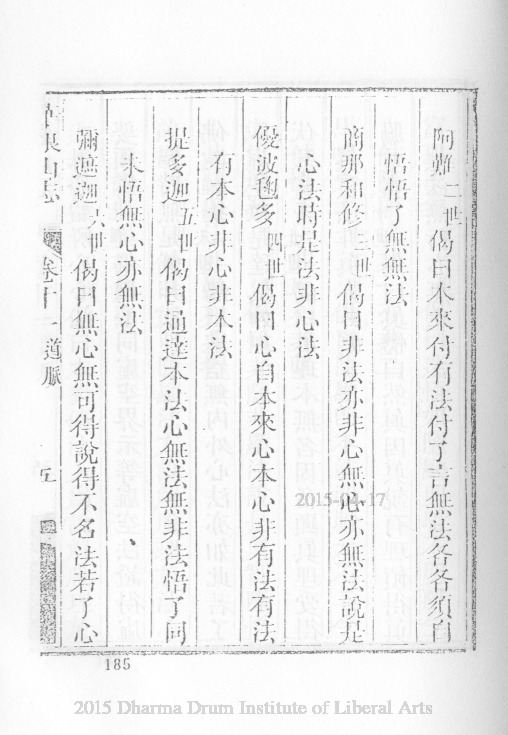 阿難二世偈曰本來付有法付了言無法各各須自
悟悟了無無法
商那和修三世偈曰非法亦非心無心亦無法說是
心法時是法非心法
優波毱多四世偈曰心自本來心本心非有法有法
有本心非心非本法
提多迦五世偈曰通達本法心無法無非法悟了同
未悟無心亦無法
彌遮迦六世偈曰無心無可得說得不名法若了心
山志 卷十一道脈 五
185
2015-04-17
2015 Dharma Drum Institute of Liberal Arts